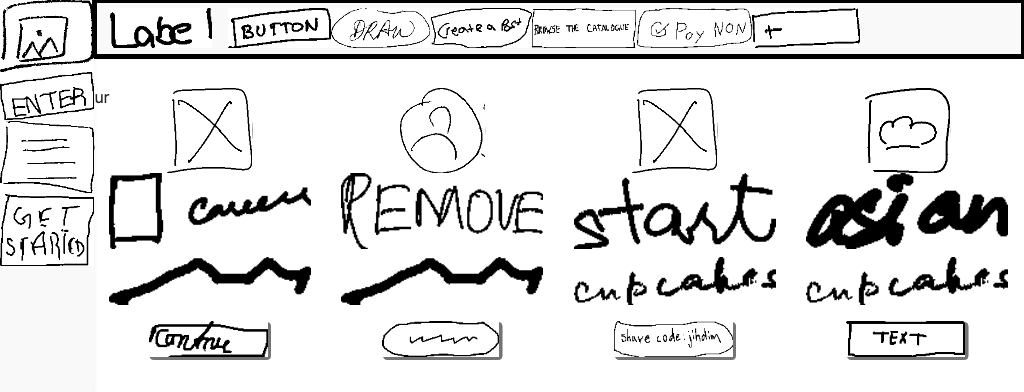 Label BUTTON DRAW Create a Post BROWSE THE CATALOGUE Pay NON +
ENTER ur
GET
STARTED
career REMOVE start asian
cupcakes cupcakes
Continue share code: jihdim TEXT